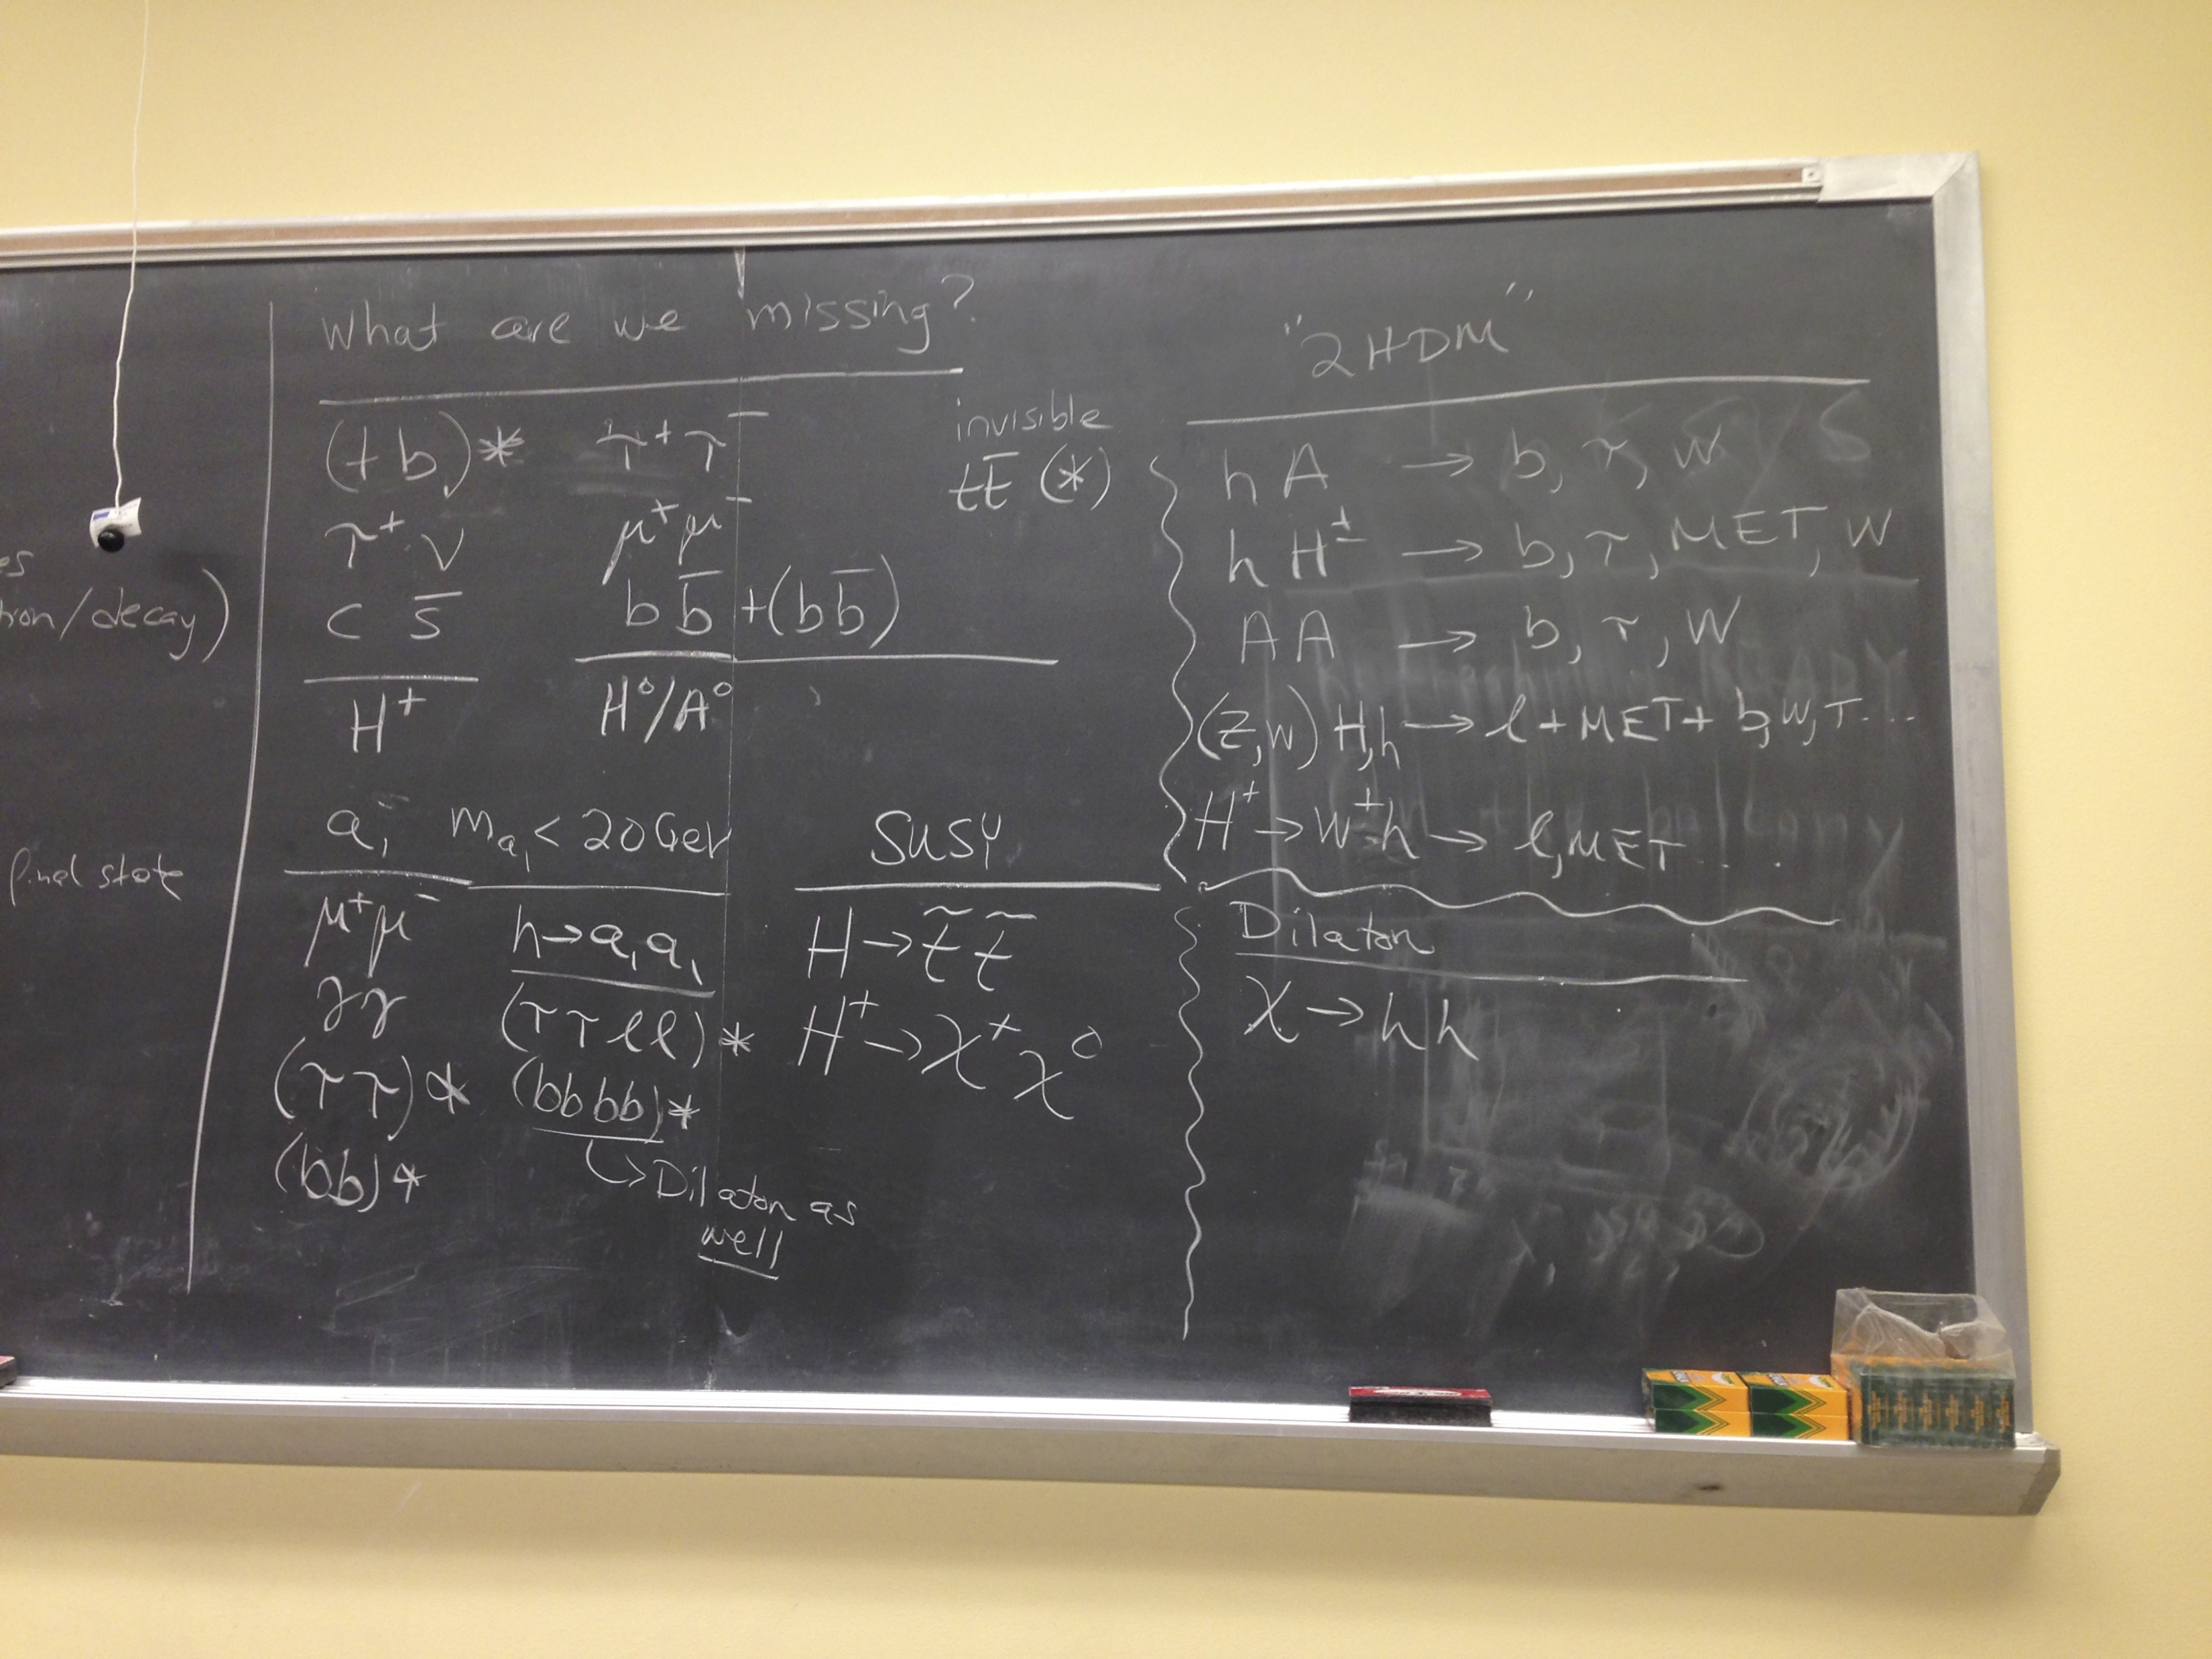 tion/decay)
final state
What are we missing?
(t b)* τ⁺τ⁻
invisible
tt̄ (*)
τ⁺ ν μ⁺μ⁻
c s̄ b b̄ +(b b̄)
H⁺ H⁰/A⁰
a₁ m_a₁ < 20 GeV
μ⁺μ⁻ h→a₁a₁
γγ (ττℓℓ)*
(ττ)* (bbbb)*
(bb)* ↳Dilaton as
well
SUSY
H→t̃ t̃
H⁺→χ⁺χ⁰
"2HDM"
hA → b, τ, W
hH± → b, τ, MET, W
AA → b, τ, W
(Z,W) H,h → ℓ+MET+ b,W,τ...
H⁺→W⁺h → ℓ,MET...
Dilaton
χ→hh